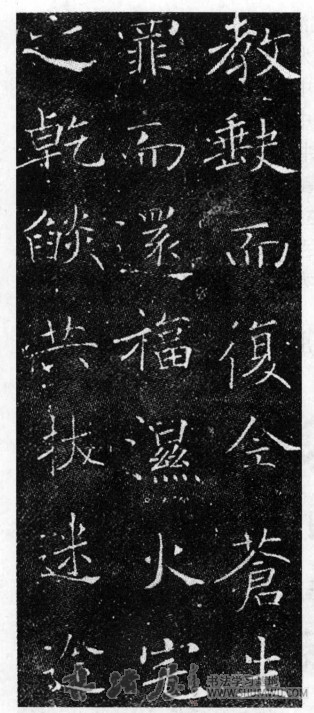 教缺而復全蒼生
罪而還福濕火宅
之乾燄共拔迷途